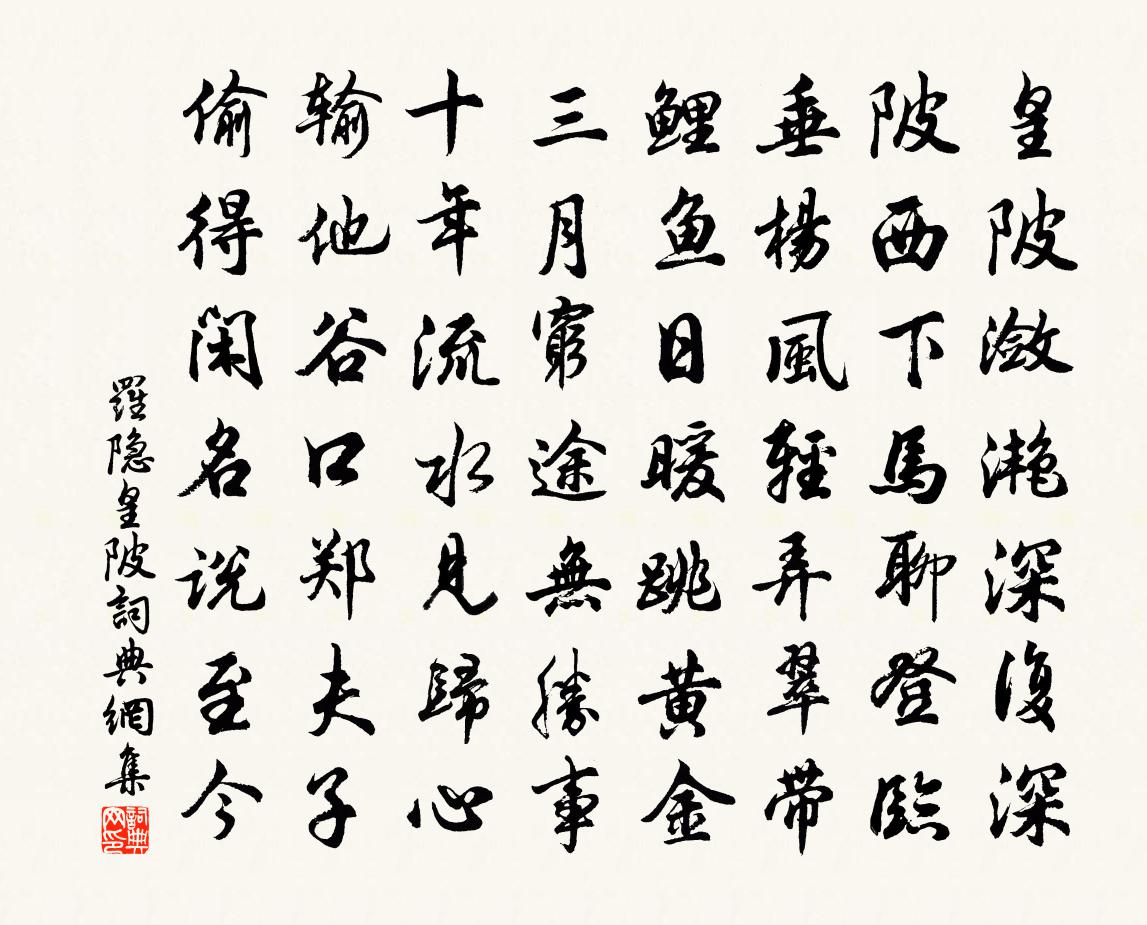 皇陂潋滟深復深
陂西下馬聊登臨
垂楊風輕弄翠帶
鲤魚日暖跳黄金
三月窮途無勝事
十年流水見歸心
输他谷口郑夫子
偷得閑名说至今
羅隐皇陂詞典網集
詞典网印